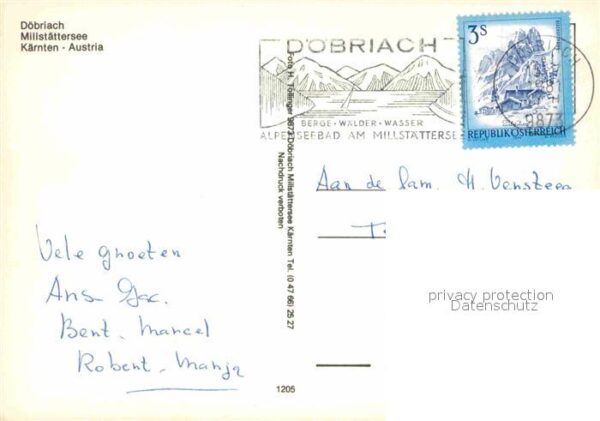 Döbriach
Millstättersee
Kärnten - Austria
DÖBRIACH
BERGE · WÄLDER · WASSER
ALPENSEEBAD AM MILLSTÄTTERSE
3S
REPUBLIK ÖSTERREICH
DÖBRIACH
9873
Foto H. Tollinger 9873 Döbriach Millstättersee Kärnten Tel. (0 47 66) 25 27
Nachdruck verboten
Aan de fam. H. Vensteen
Vele groeten
Ans Jac.
Bent. Marcel
Robent. Manja
privacy protection
Datenschutz
1206